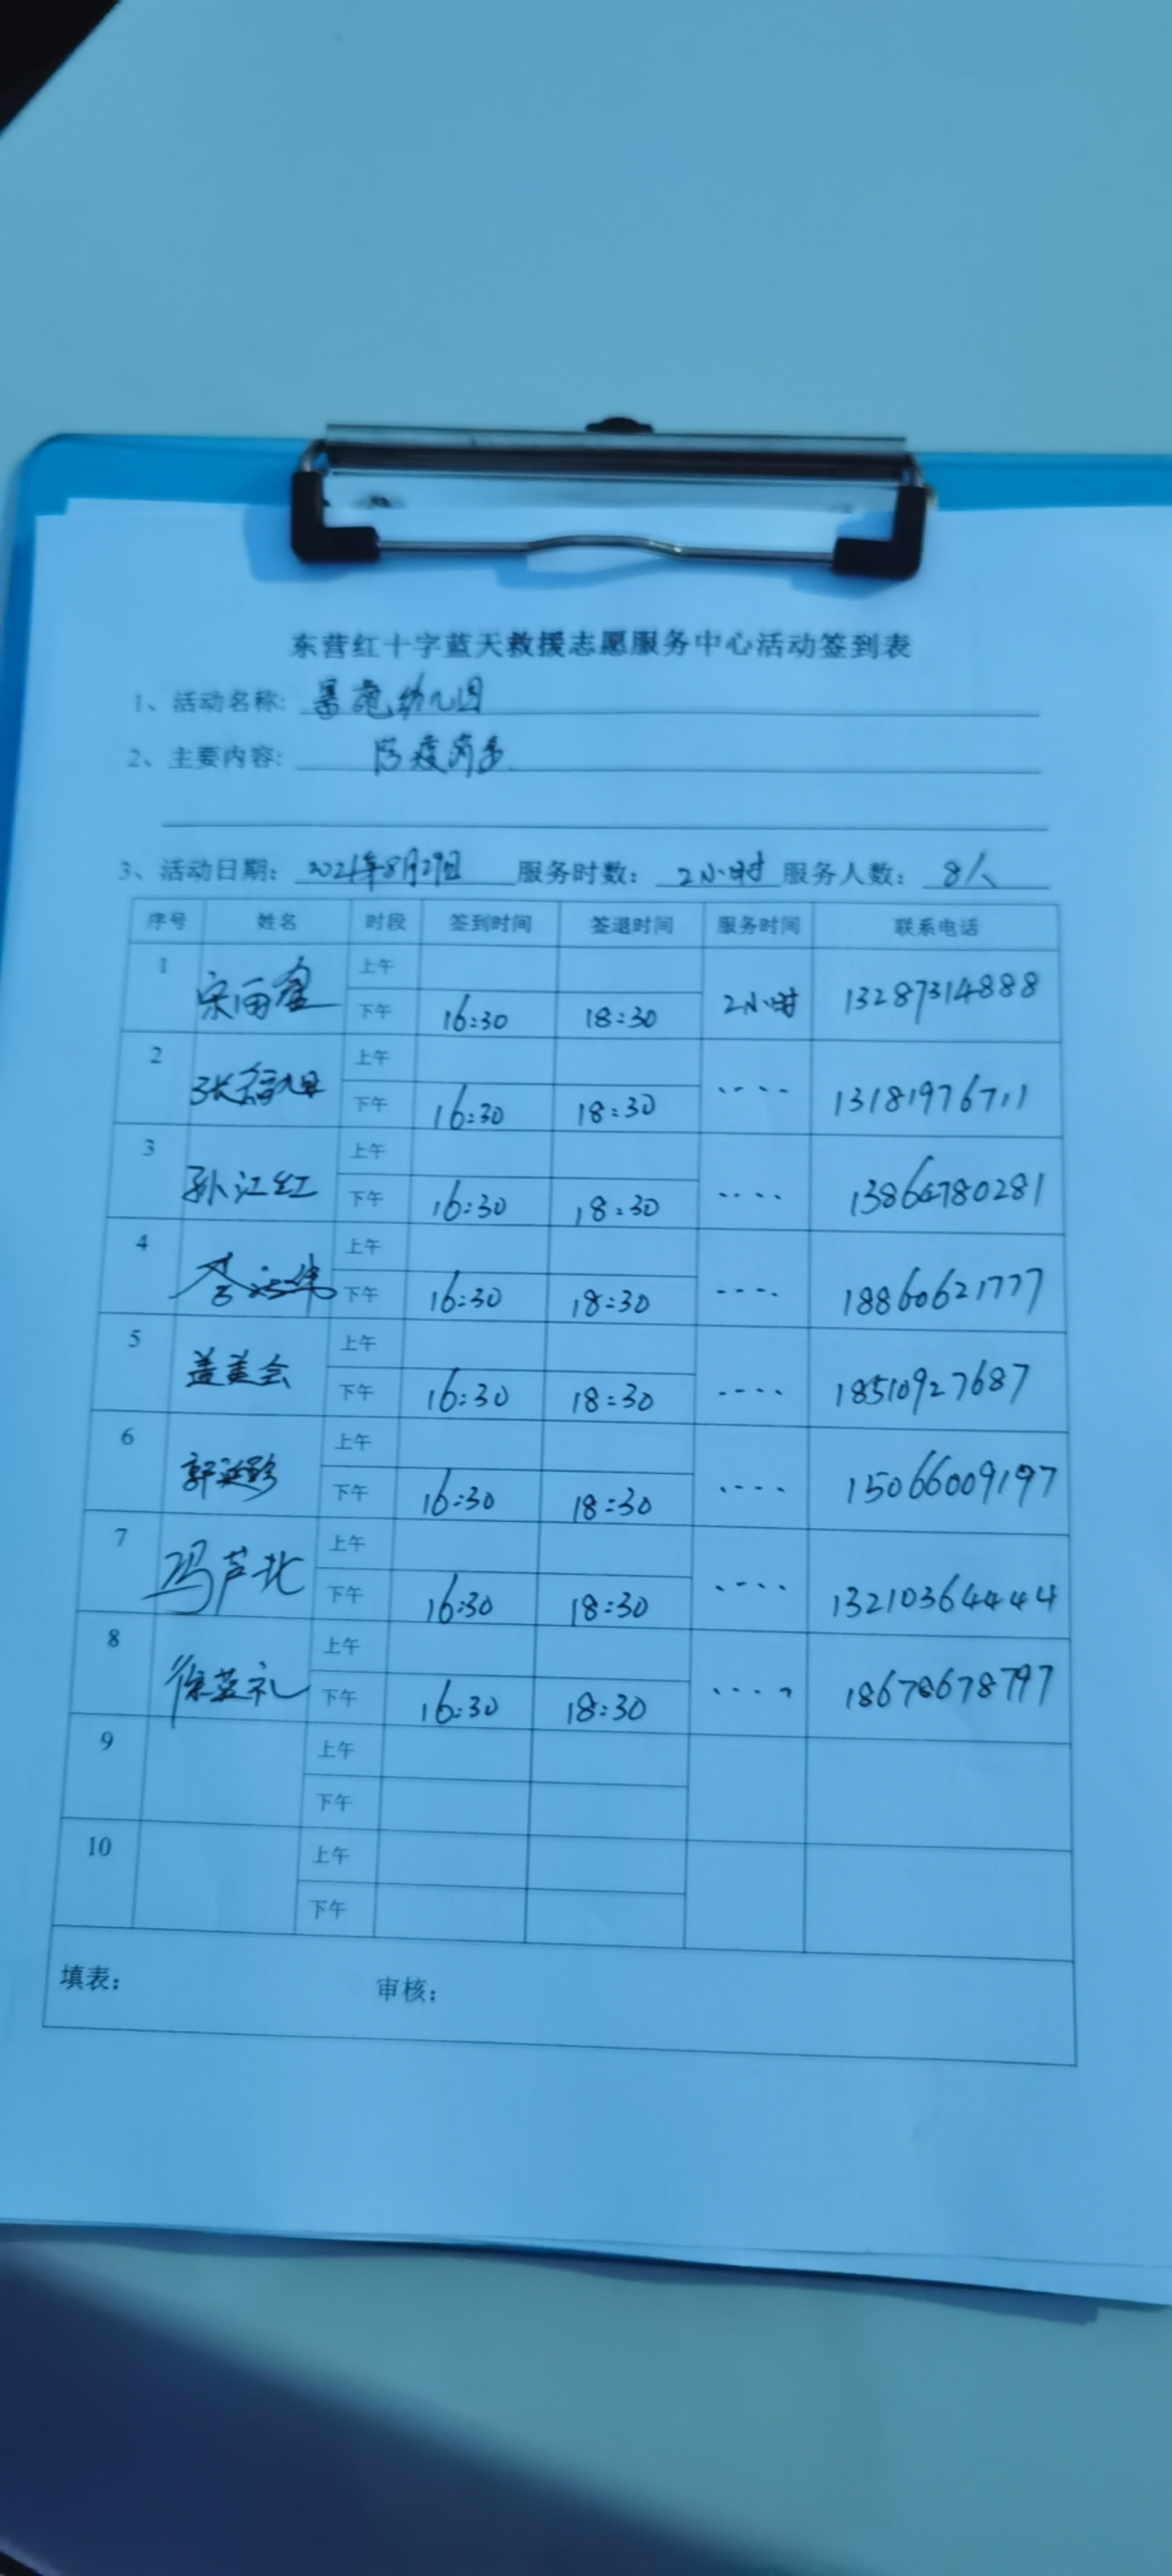 东营红十字蓝天救援志愿服务中心活动签到表
1、活动名称: 幼儿园
2、主要内容: 防疫消杀
3、活动日期: 2021年8月29日 服务时数: 2小时 服务人数: 8人
序号 姓名 时段 签到时间 签退时间 服务时间 联系电话
1 上午
下午 16:30 18:30 2小时 13287314888
2 上午
下午 16:30 18:30 13181976711
3 孙江红 上午
下午 16:30 18:30 13864780281
4 上午
下午 16:30 18:30 18860621777
5 盖美会 上午
下午 16:30 18:30 18510927687
6 上午
下午 16:30 18:30 15066009197
7 冯芦北 上午
下午 16:30 18:30 13210364444
8 徐英礼 上午
下午 16:30 18:30 18678678797
9 上午
下午
10 上午
下午
填表: 审核: